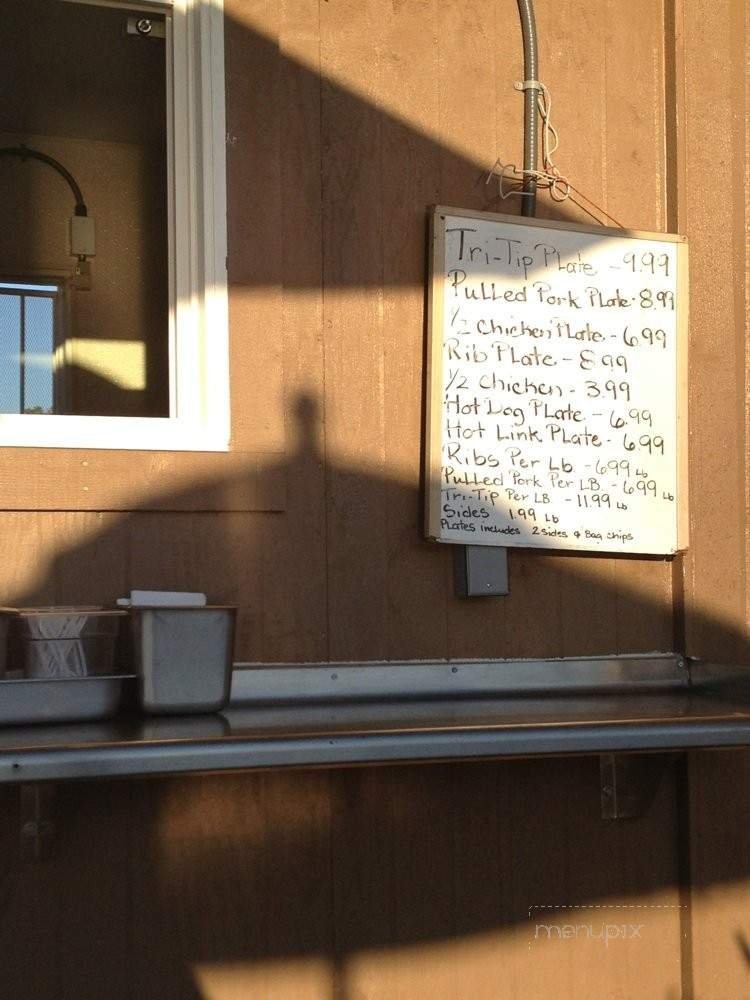 Tri-Tip Plate - 9.99
Pulled Pork Plate - 8.99
1/2 Chicken Plate - 6.99
Rib Plate - 8.99
1/2 Chicken - 3.99
Hot Dog Plate - 6.99
Hot Link Plate - 6.99
Ribs Per Lb - 6.99 Lb
Pulled Pork Per LB. - 6.99 Lb
Tri-Tip Per LB - 11.99 Lb
Sides 1.99 Lb
Plates includes 2 sides & Bag chips
menupix